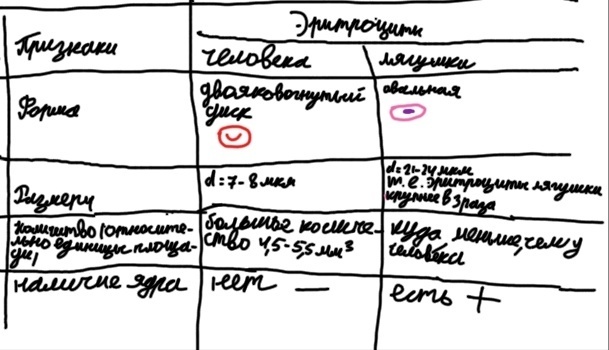 Эритроциты
Признаки
человека
лягушки
Форма
двояковогнутый
диск
овальная
Размеры
d=7-8 мкм
d=21-24 мкм
т.е. эритроциты лягушки
крупнее в 3 раза
количество (относите-
льно единицы площа-
ди)
большое количе-
ство 4,5-5,5 мм³
куда меньше, чем у
человека
наличие ядра
нет —
есть +